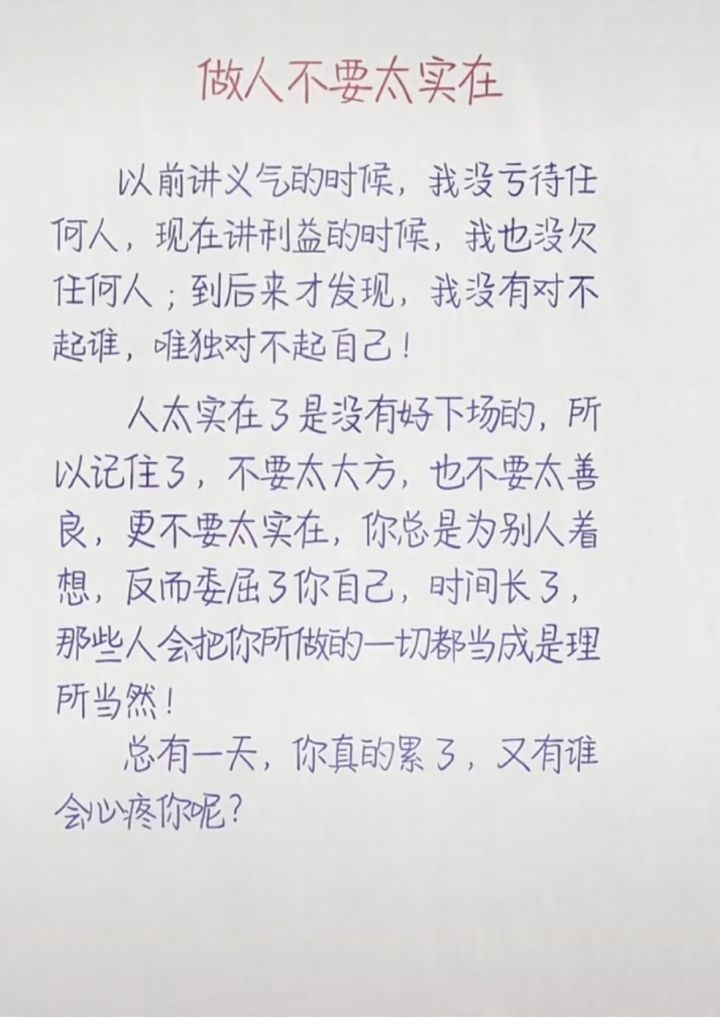 做人不要太实在
以前讲义气的时候，我没亏待任
何人，现在讲利益的时候，我也没欠
任何人；到后来才发现，我没有对不
起谁，唯独对不起自己！
人太实在了是没有好下场的，所
以记住了，不要太大方，也不要太善
良，更不要太实在，你总是为别人着
想，反而委屈了你自己，时间长了，
那些人会把你所做的一切都当成是理
所当然！
总有一天，你真的累了，又有谁
会心疼你呢？